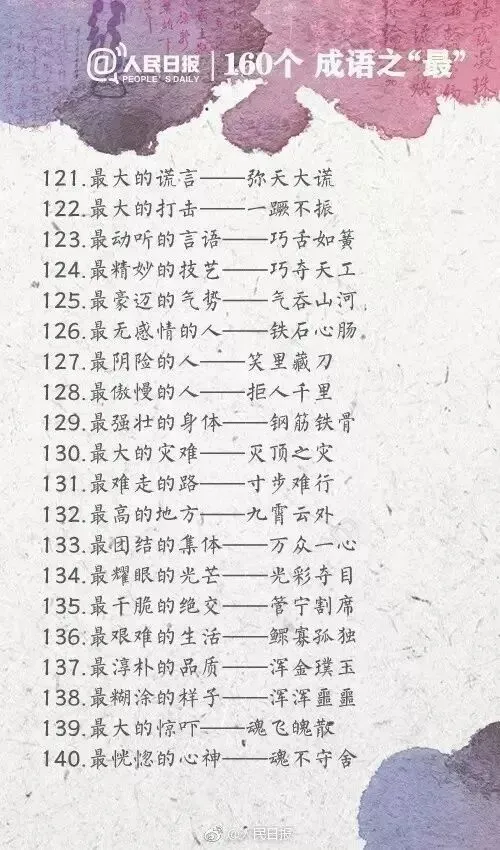 @人民日报 PEOPLE'S DAILY 160个 成语之“最”
121.最大的谎言——弥天大谎
122.最大的打击——一蹶不振
123.最动听的言语——巧舌如簧
124.最精妙的技艺——巧夺天工
125.最豪迈的气势——气吞山河
126.最无感情的人——铁石心肠
127.最阴险的人——笑里藏刀
128.最傲慢的人——拒人千里
129.最强壮的身体——钢筋铁骨
130.最大的灾难——灭顶之灾
131.最难走的路——寸步难行
132.最高的地方——九霄云外
133.最团结的集体——万众一心
134.最耀眼的光芒——光彩夺目
135.最干脆的绝交——管宁割席
136.最艰难的生活——鳏寡孤独
137.最淳朴的品质——浑金璞玉
138.最糊涂的样子——浑浑噩噩
139.最大的惊吓——魂飞魄散
140.最恍惚的心神——魂不守舍
@人民日报